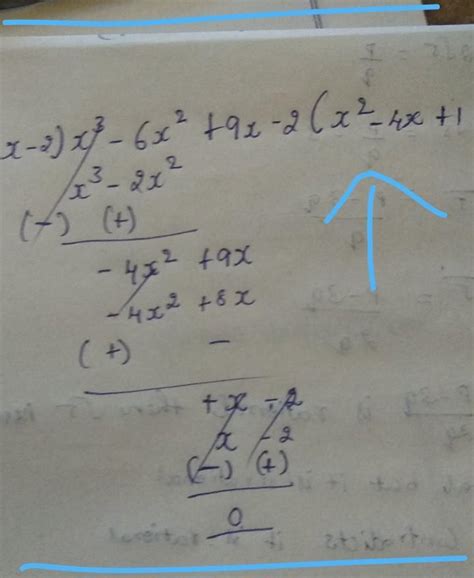 x-2) x³ - 6x² + 9x - 2 ( x² - 4x + 1
x³ - 2x²
(-) (+)
- 4x² + 9x
- 4x² + 8x
(+) -
+ x - 2
x - 2
(-) (+)
0